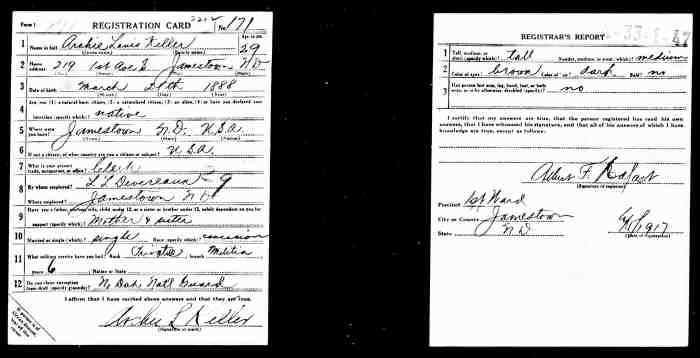 Form 1
REGISTRATION CARD
2212 No. 171
1 Name in full Archie Lewis Keller
(Given name) (Family name)
Age, in yrs. 29
2 Home address 219 1st Ave E Jamestown N D
3 Date of birth March 29th 1888
(Month) (Day) (Year)
4 Are you (1) a natural-born citizen, (2) a naturalized citizen, (3) an alien, (4) or have you declared your
intention (specify which)? native
5 Where were you born? Jamestown N.D. U.S.A.
6 If not a citizen, of what country are you a citizen or subject? U.S.A.
7 What is your present trade, occupation, or office? Clerk
8 By whom employed? L L Devereaux
Where employed? Jamestown N D
9 Have you a father, mother, wife, child under 12, or a sister or brother under 12, solely dependent on you for
support (specify which)? Mother & sister
10 Married or single (which)? single Race (specify which)?
11 What military service have you had? Rank Private branch Militia
years 6 Nation or State
12 Do you claim exemption from draft (specify grounds)? N. Dak Nat'l Guard
I affirm that I have verified above answers and that they are true.
Archie L Keller
(Signature or mark)
REGISTRAR'S REPORT
1 Tall, medium, or short (specify which)? tall Slender, medium, or stout (which)? medium
2 Color of eyes? brown Color of hair? dark Bald? no
3 Has person lost arm, leg, hand, foot, or both eyes, or is he otherwise disabled (specify)? no
I certify that my answers are true, that the person registered has read his own
answers, that I have witnessed his signature, and that all of his answers of which I have
knowledge are true, except as follows:
Albert F.
(Signature of registrar)
Precinct 1st Ward
City or County Jamestown
State N D
1917
(Date of registration)